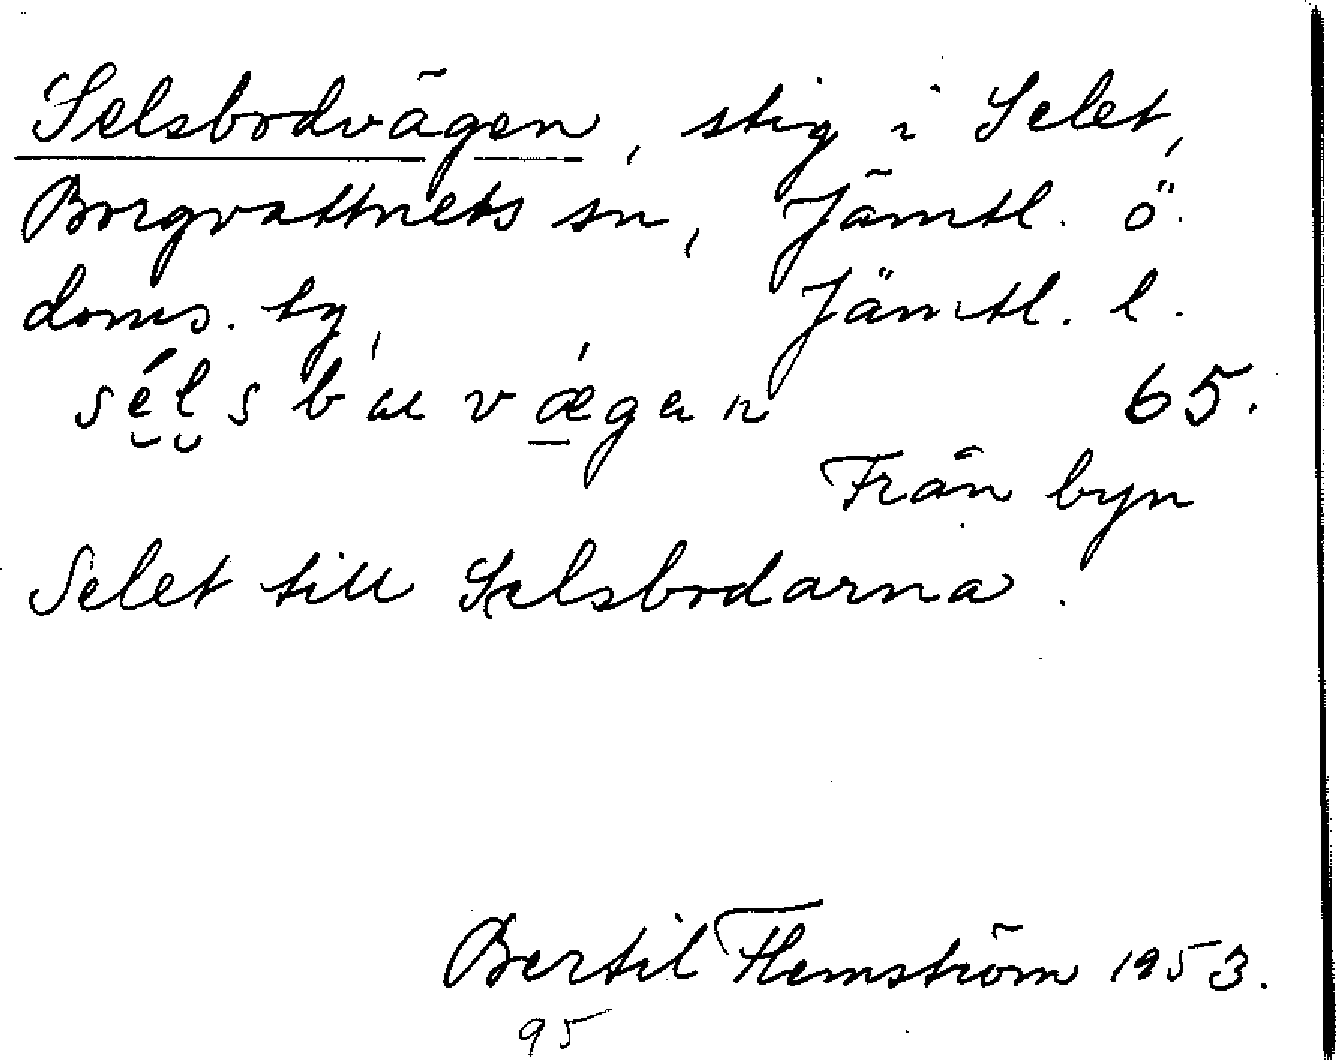 Selsbodvägen, stig i Selet,
Borgvattnets sn, Jämtl. ö.
doms. tg, Jämtl. l.
65.
Från byn
Selet till Selsbodarna.
Bertil Flemström 1953.
95